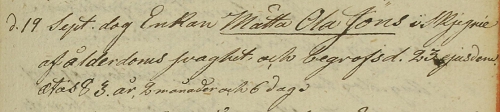 d. 19 Sept. dog Enkan Mätta Ola Jöns i Skjegrie
af ålderdoms svaghet och begrofs d. 23 ejusdem.
ætas 83. år, 2 månader och 6 dagar